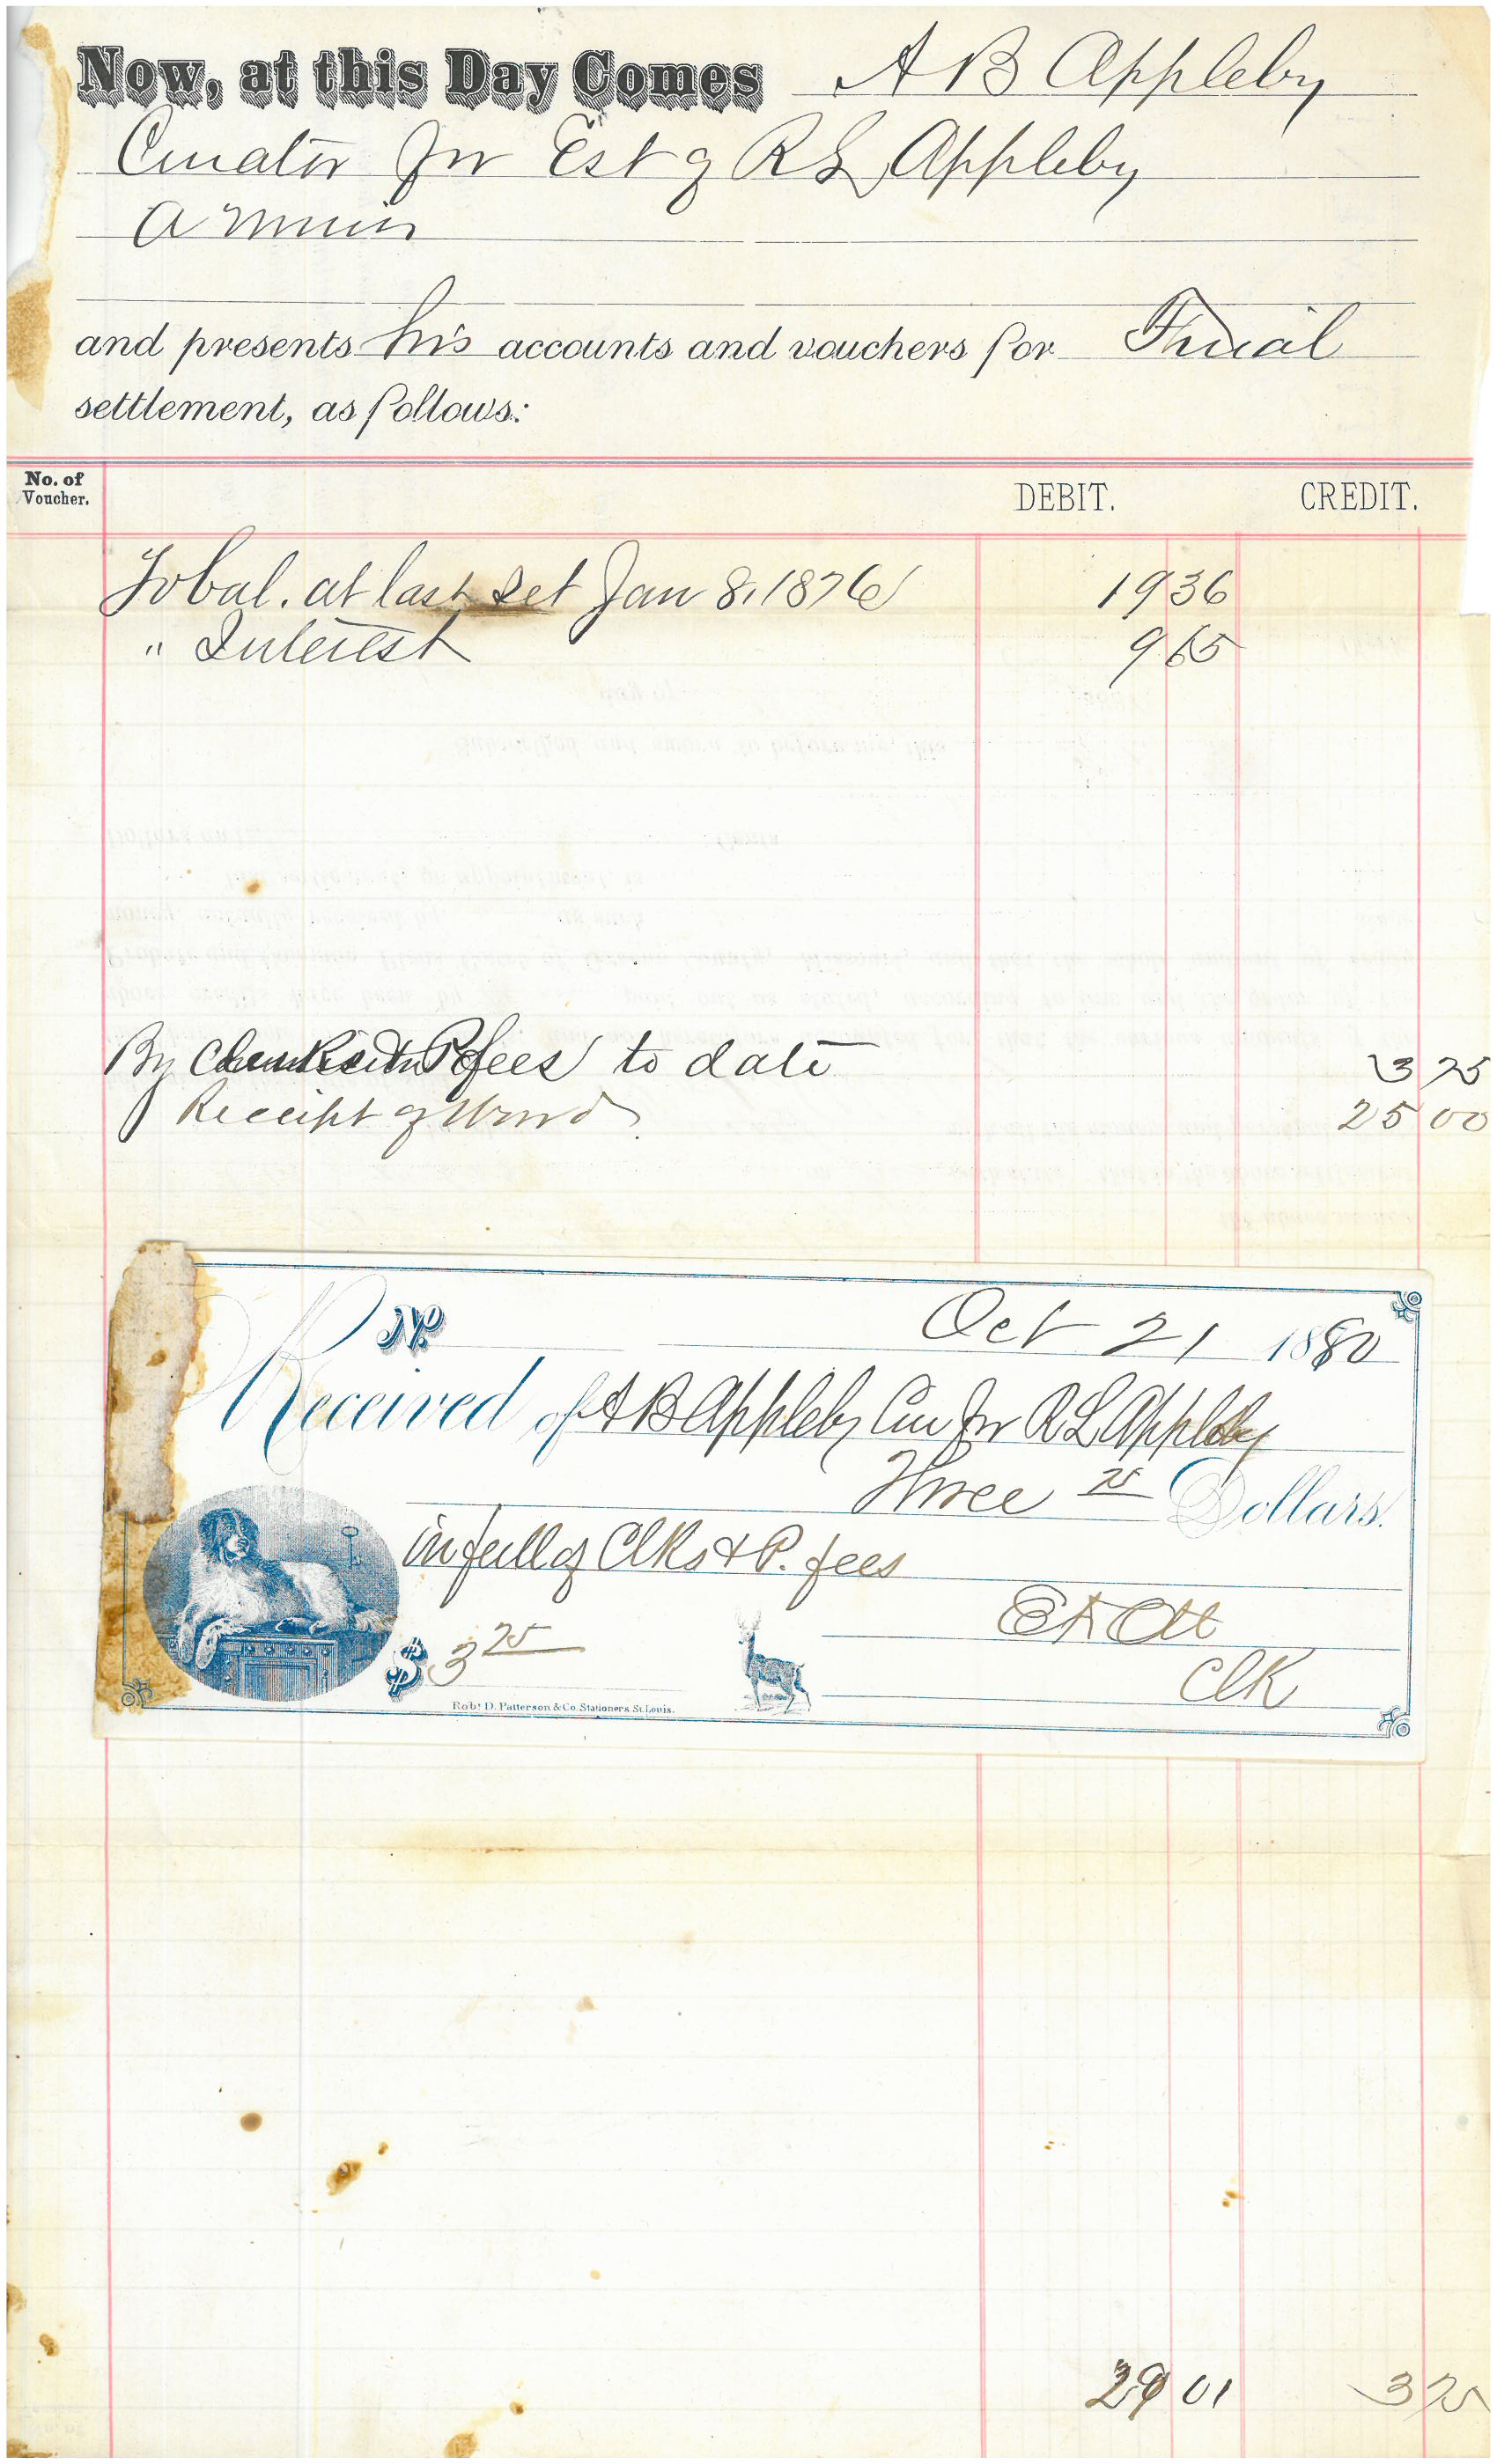 Now, at this Day Comes A B Appleby
Curator for Est of R L Appleby
a minor
and presents his accounts and vouchers for Final
settlement, as follows:
No. of
Voucher.
DEBIT. CREDIT.
To bal. at last set Jan 8, 1876 19 36
" Interest 9 65
By fees to date 3 25
Receipt of Ward 25 00
No. Oct 21 1880
Received of A B Appleby Cur for R L Appleby
Three 25 Dollars.
in full of Clks & P. fees
$ 3 25
Clk
Robt. D. Patterson & Co. Stationers St. Louis.
29 01 3 25